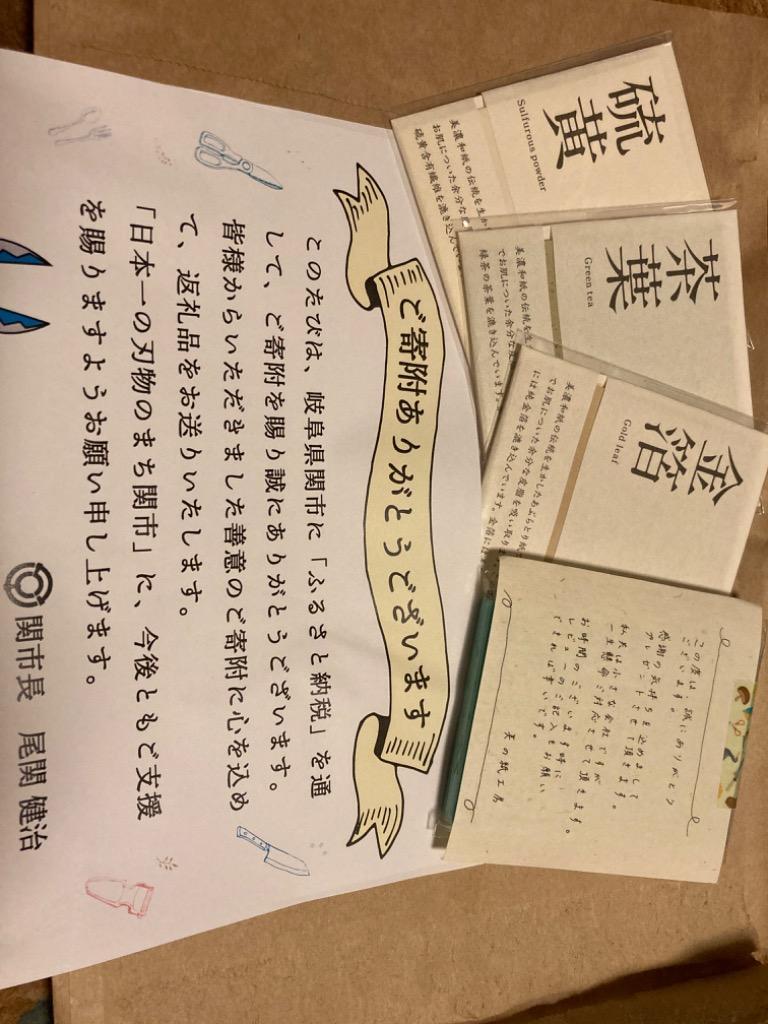 ご寄附ありがとうございます
このたびは、岐阜県関市に「ふるさと納税」を通
して、ご寄附を賜り誠にありがとうございます。
皆様からいただきました善意のご寄附に心を込め
て、返礼品をお送りいたします。
「日本一の刃物のまち関市」に、今後ともご支援
を賜りますようお願い申し上げます。
関市長 尾関 健治
硫黄
Sulfurous powder
美濃和紙の伝統を生か
お肌についた余分な
硫黄含有繊維を漉き込んで
茶葉
Green tea
美濃和紙の伝統を生
でお肌についた余分な皮
緑茶の茶葉を漉き込んでいます。
金箔
Gold leaf
美濃和紙の伝統を生かしたあぶらとり紙
でお肌についた余分な皮脂を吸い取り
には純金箔を漉き込んでいます。金箔には
この度は、誠にありがとう
ございます。
感謝の気持ちを込めまして
プレゼントさせて頂きます。
私共は小さな会社ですが
一生懸命ご対応させて頂きます。
お時間のございます時に
レビューのご記入をお願い
できれば幸いです。
美の紙工房